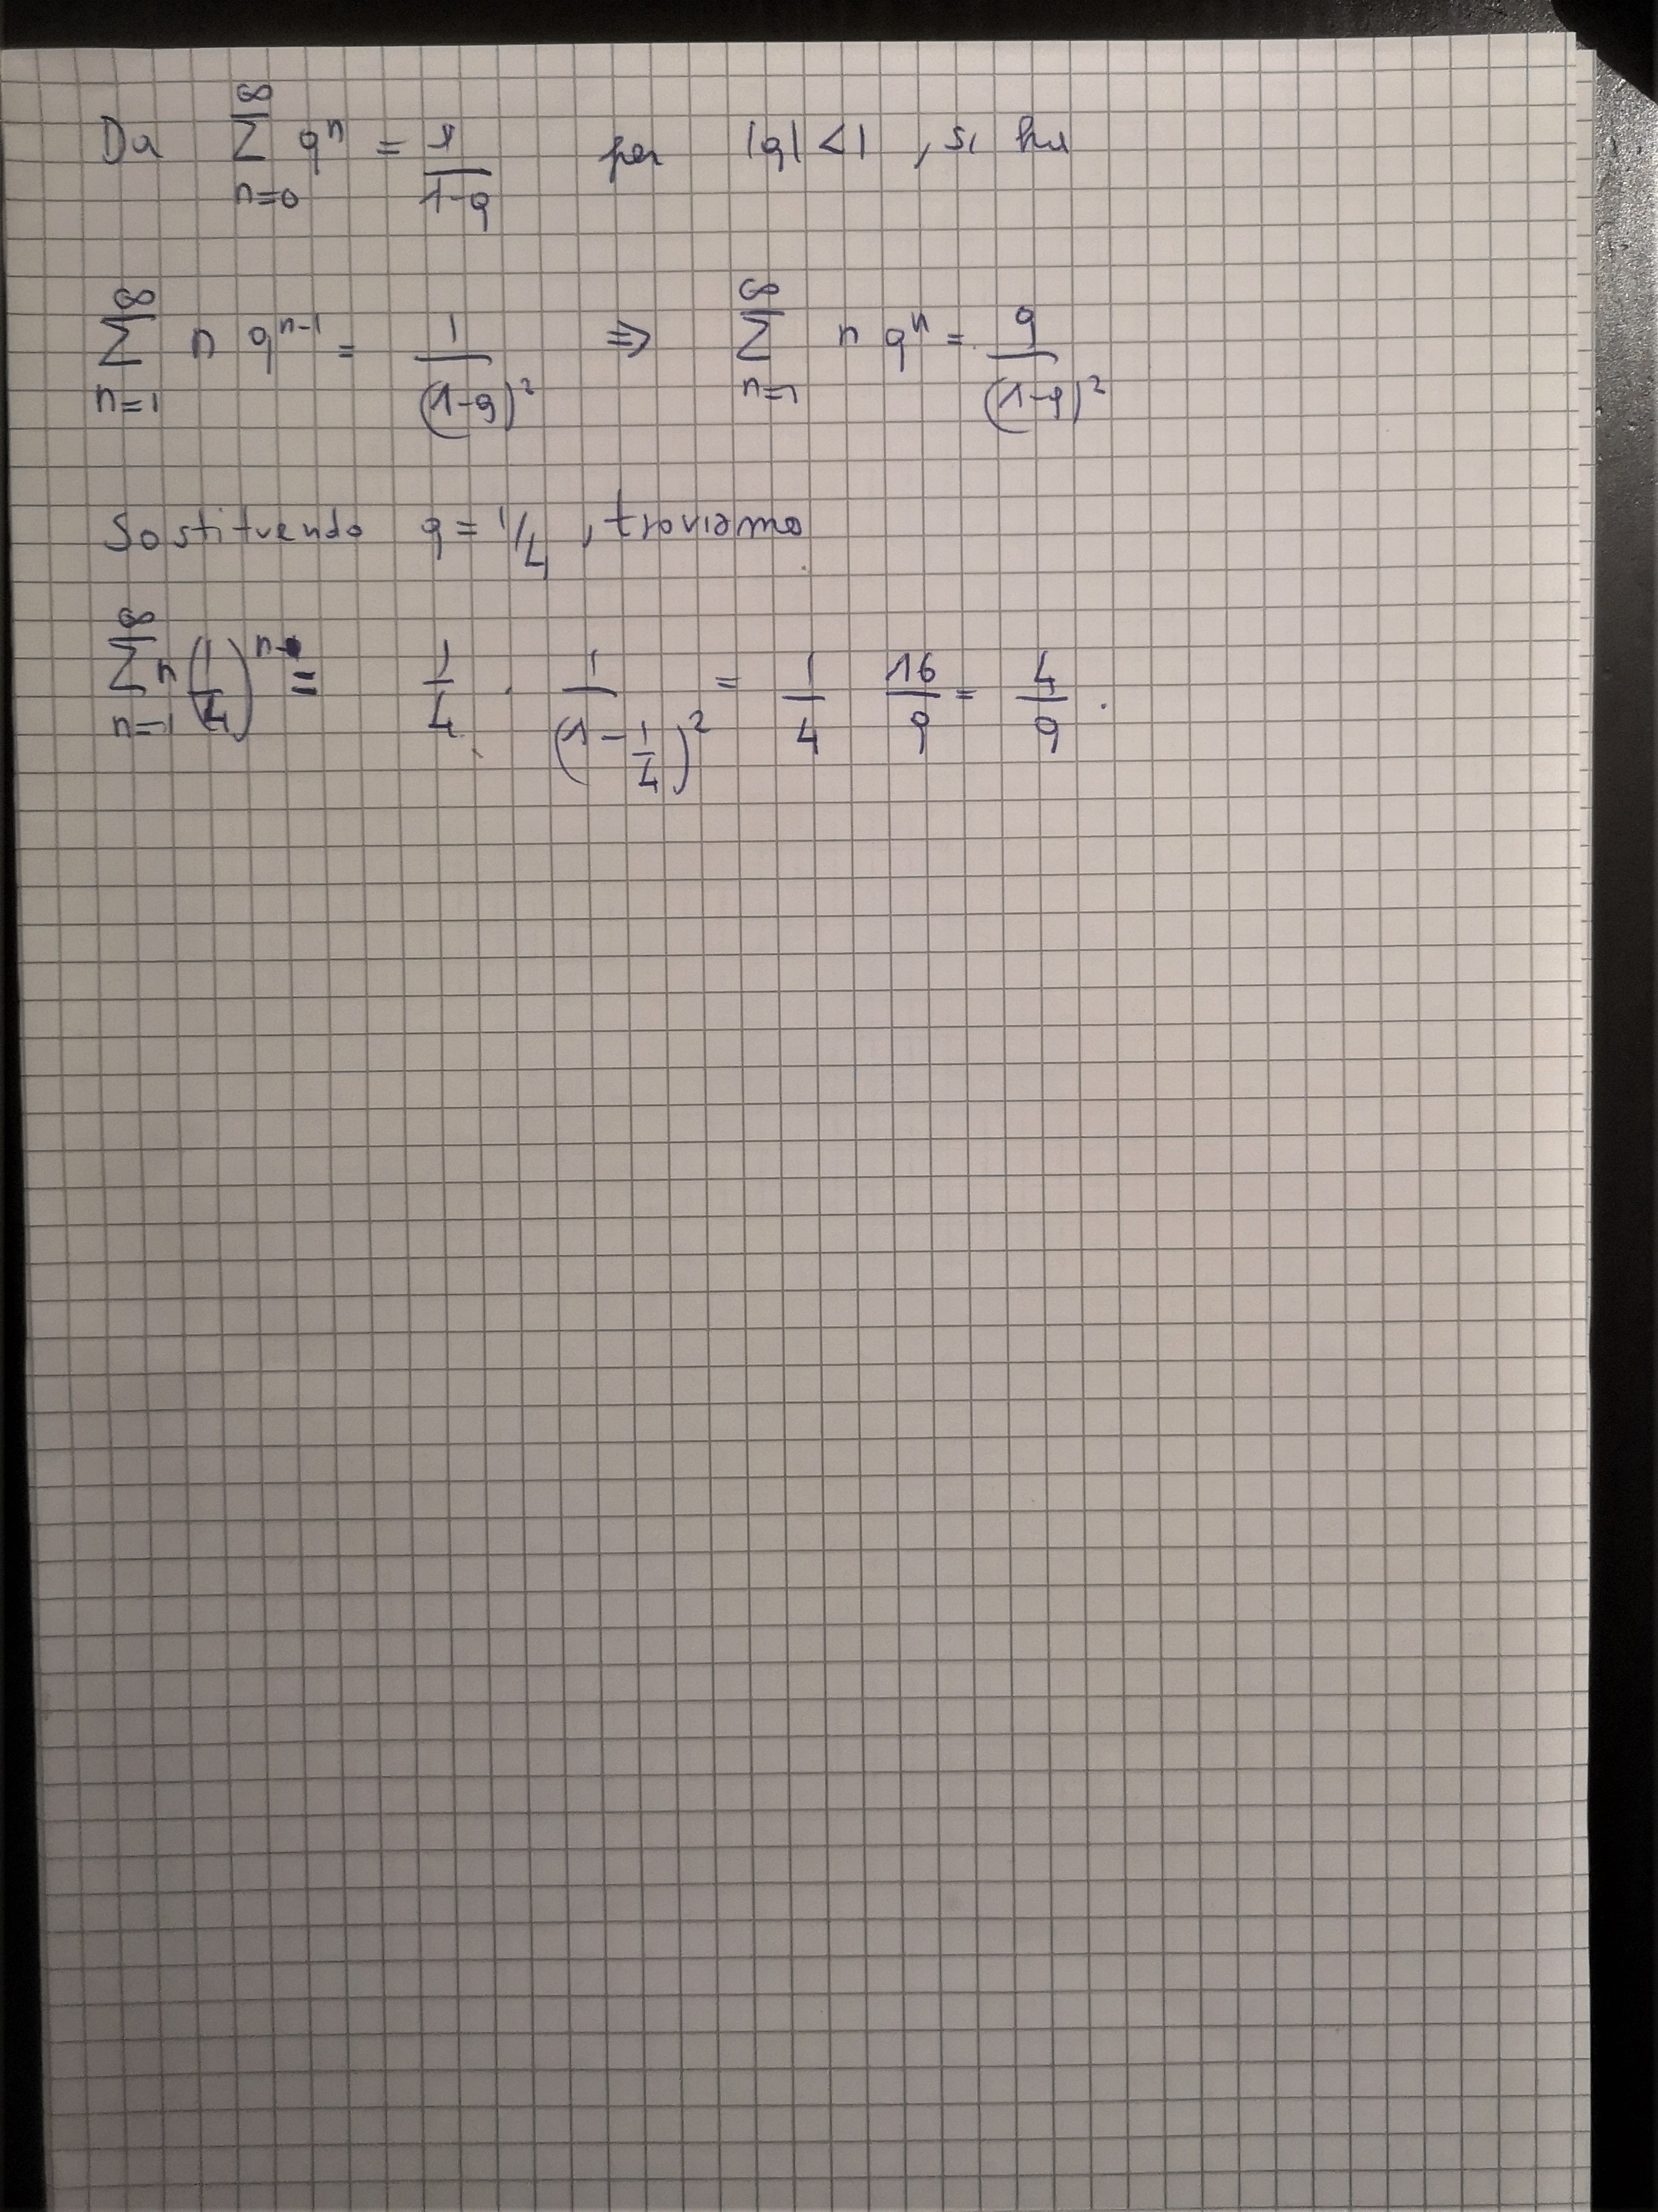 Da ∑_{n=0}^{∞} q^n = 1/(1-q) per |q| < 1 , si ha
∑_{n=1}^{∞} n q^{n-1} = 1/(1-q)^2 ⇒ ∑_{n=1}^{∞} n q^n = q/(1-q)^2
Sostituendo q = 1/4 , troviamo
∑_{n=1}^{∞} n (1/4)^n = 1/4 · 1/(1-1/4)^2 = 1/4 16/9 = 4/9 .